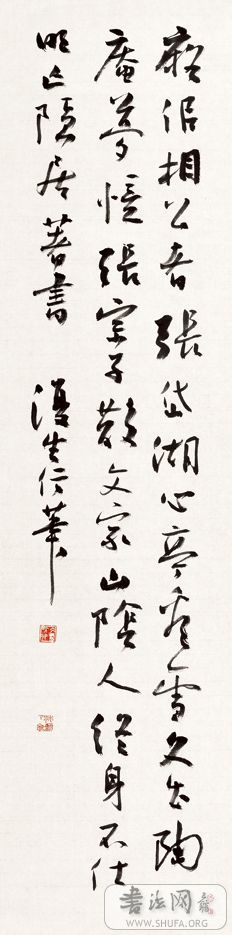 痴似相公者張岱湖心亭看雪文出陶
庵夢憶張宗子散文家山陰人終身不仕
明亡隱居著書
漫生行筆
書法网
WWW.SHUFA.ORG